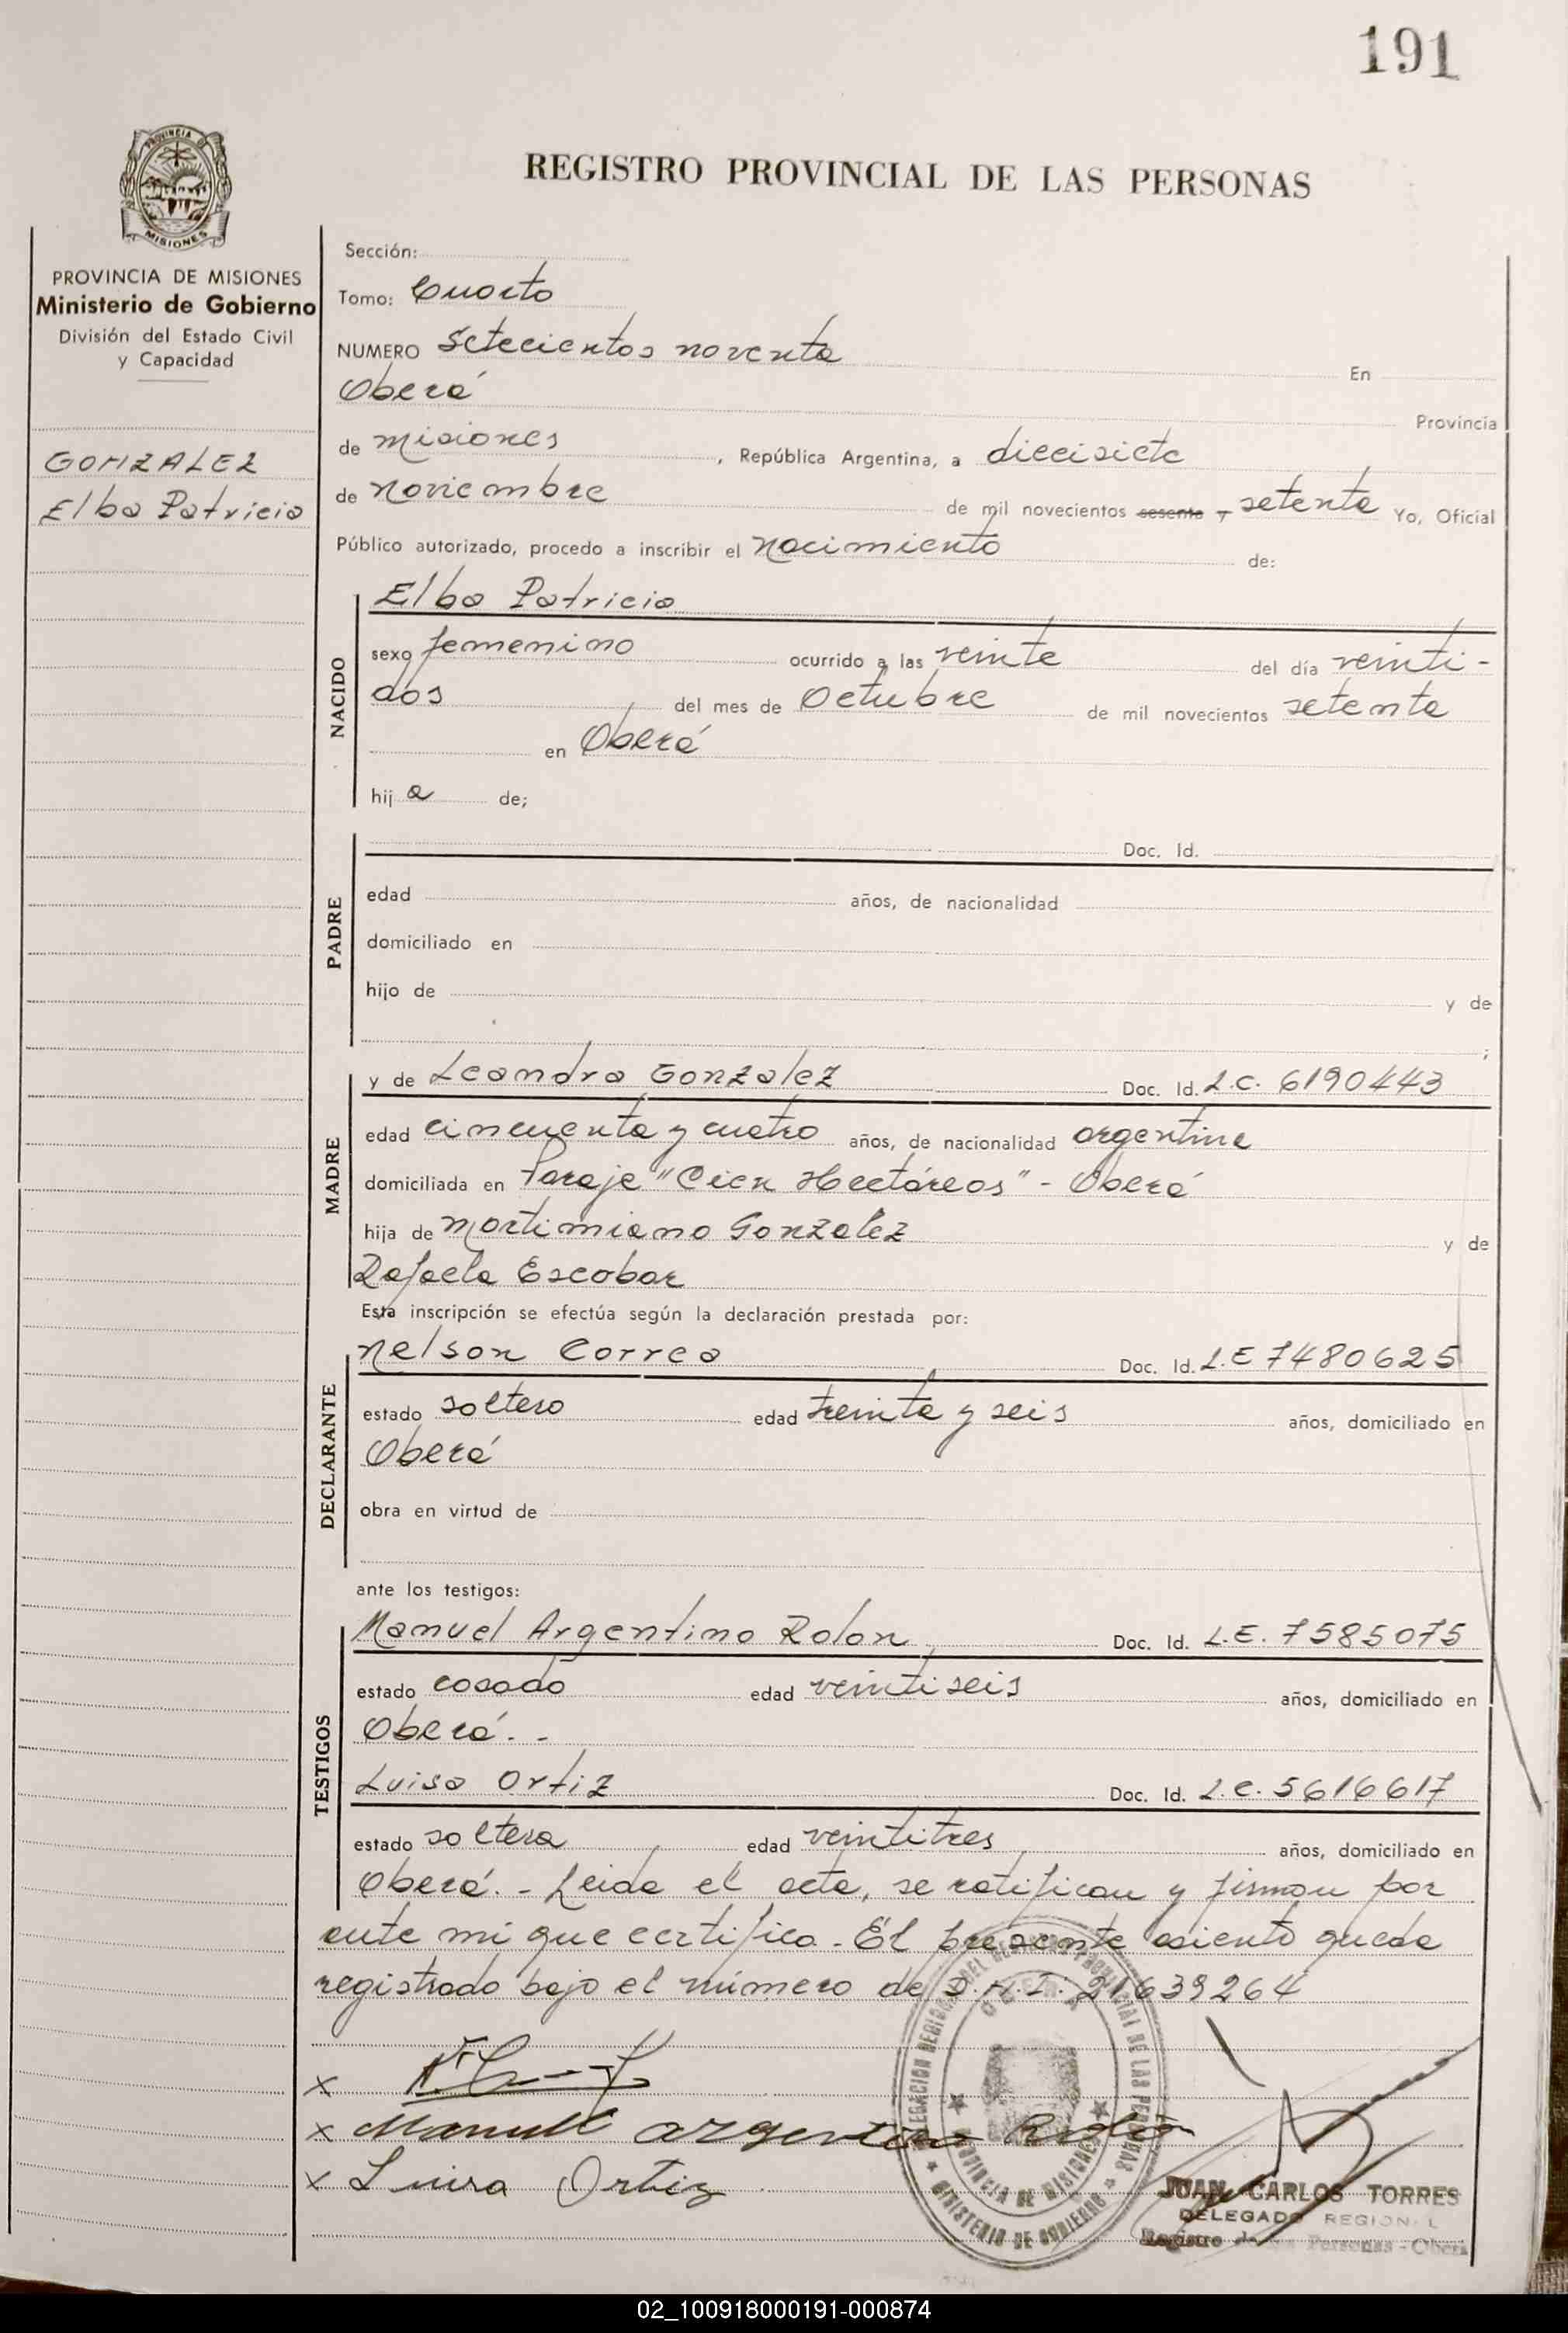 191
PROVINCIA
MISIONES
REGISTRO PROVINCIAL DE LAS PERSONAS
PROVINCIA DE MISIONES
Ministerio de Gobierno
División del Estado Civil
y Capacidad
GONZALEZ
Elba Patricia
Sección:
Tomo: Cuarto
NUMERO Setecientos noventa En
Oberá Provincia
de misiones, República Argentina, a diecisiete
de noviembre de mil novecientos sesenta y setenta Yo, Oficial
Público autorizado, procedo a inscribir el nacimiento de:
NACIDO
Elba Patricia
sexo femenino ocurrido a las veinte del día veinti-
dos del mes de Octubre de mil novecientos setenta
en Oberá
hij a de;
PADRE
Doc. Id.
edad años, de nacionalidad
domiciliado en
hijo de y de
;
MADRE
y de Leandra Gonzalez Doc. Id. L.C. 6190443
edad cincuenta y cuatro años, de nacionalidad argentina
domiciliada en Paraje "Cien Hectáreas" - Oberá
hija de Martimiano Gonzalez y de
Rafaela Escobar
Esta inscripción se efectúa según la declaración prestada por:
DECLARANTE
Nelson Correa Doc. Id. L.E 7480625
estado soltero edad treinta y seis años, domiciliado en
Oberá
obra en virtud de
ante los testigos:
TESTIGOS
Manuel Argentino Rolon Doc. Id. L.E. 7585075
estado casado edad veintiseis años, domiciliado en
Oberá. -
Luisa Ortiz Doc. Id. L.C. 5616617
estado soltera edad veintitres años, domiciliado en
Oberá. - Leida el acta, se ratifican y firman por
ante mi que certifico. - El presente asiento queda
registrado bajo el número de D.N.I. 21639264
x
x Manuel argentino Rolon
x Luisa Ortiz
DELEGACION REGIONAL DEL REGISTRO PROVINCIAL DE LAS PERSONAS
OBERA
PROVINCIA DE MISIONES
MINISTERIO DE GOBIERNO
JUAN CARLOS TORRES
DELEGADO REGIONAL
Registro de las Personas - Oberá
02_100918000191-000874